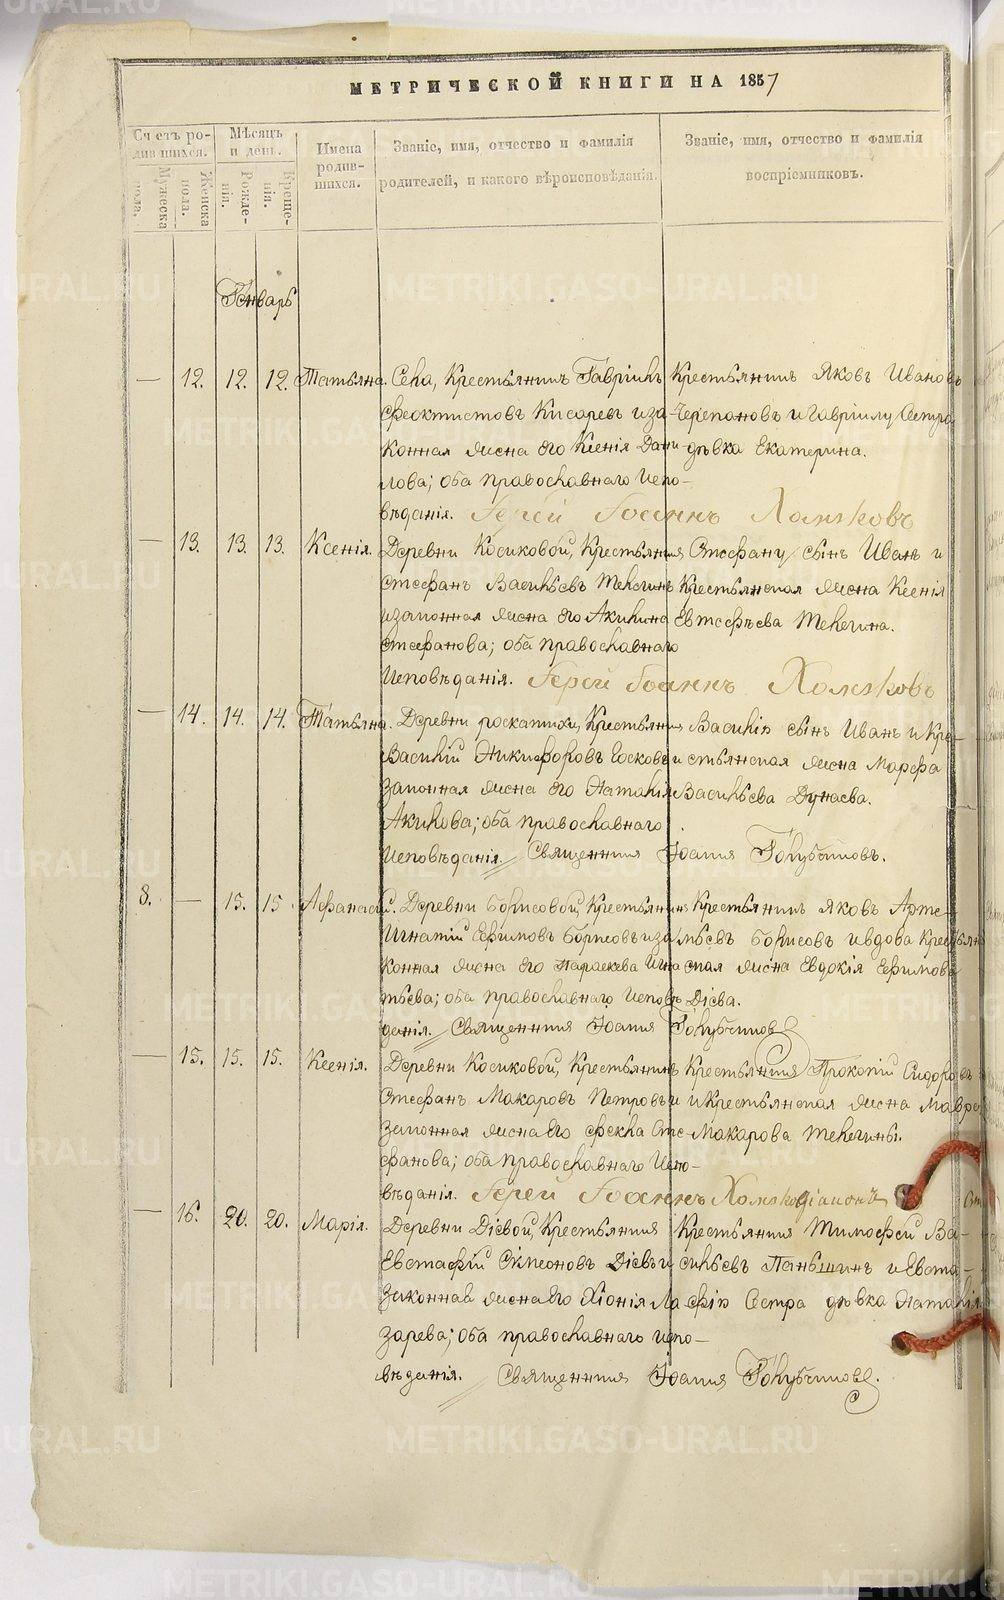 МЕТРИЧЕСКОЙ КНИГИ НА 1857
Счетъ родившихся.
Мужеска пола.
Женска пола.
Мѣсяцъ и день.
Рожденія.
Крещенія.
Имена родившихся.
Званіе, имя, отчество и фамилія
родителей, и какого вѣроисповѣданія.
Званіе, имя, отчество и фамилія
воспріемниковъ.
Январь
— 12. 12. 12. Татьяна. Села, Крестьянинъ Гавріилъ
Феоктистовъ Кисаревъ и за-
конная жена его Ксенія Дани
лова; оба православнаго испо-
вѣданія. Іерей Іоаннъ Хомяковъ
Крестьянинъ Яковъ Ивановъ
Черепановъ и Гавріилу Сестра
дѣвка Екатерина.
— 13. 13. 13. Ксенія. Деревни Косиковой, Крестьянинъ
Стефанъ Васильевъ Телегинъ
и законная жена его Акилина
Стефанова; оба православнаго
исповѣданія. Іерей Іоаннъ Хомяковъ
Стефану сынъ Иванъ и
Крестьянская жена Ксенія
Евтефѣева Телегина.
— 14. 14. 14. Татьяна. Деревни Крестьянинъ
Василій Никифоровъ и
законная жена его Наталія
Акилова; оба православнаго
исповѣданія. Священникъ Іоаннъ Голубчиковъ.
Василія сынъ Иванъ и Кре-
стьянская жена Марфа
Васильева Дунаева.
8. — 15. 15. Афанасій. Деревни Борисовой, Крестьянинъ
Игнатій Ефимовъ Борисовъ и за
конная жена его Параскева Игна
тьева; оба православнаго исповѣ
данія. Священникъ Іоаннъ Голубчиковъ
Крестьянинъ Яковъ Арте-
мьевъ Борисовъ и вдова Крестьян
ская жена Евдокія Ефимова
Діева.
— 15. 15. 15. Ксенія. Деревни Косиковой, Крестьянинъ
Стефанъ Макаровъ Петровъ и
законная жена его Фекла Сте
фанова; оба православнаго испо-
вѣданія. Іерей Іоаннъ
Крестьянинъ Прокопій Сидоровъ
и Крестьянская жена Мавра
Макарова Телегины.
— 16. 20. 20. Марія. Деревни Діевой, Крестьянинъ
Евстафій Симеоновъ Діевъ и
законная жена его Хіонія Ла
зарева; оба православнаго испо-
вѣданія. Священникъ Іоаннъ Голубчиковъ.
Крестьянинъ Тимофей Ва-
сильевъ Паньшинъ и Евста-
фія Сестра дѣвка Наталія
METRIKI.GASO-URAL.RU